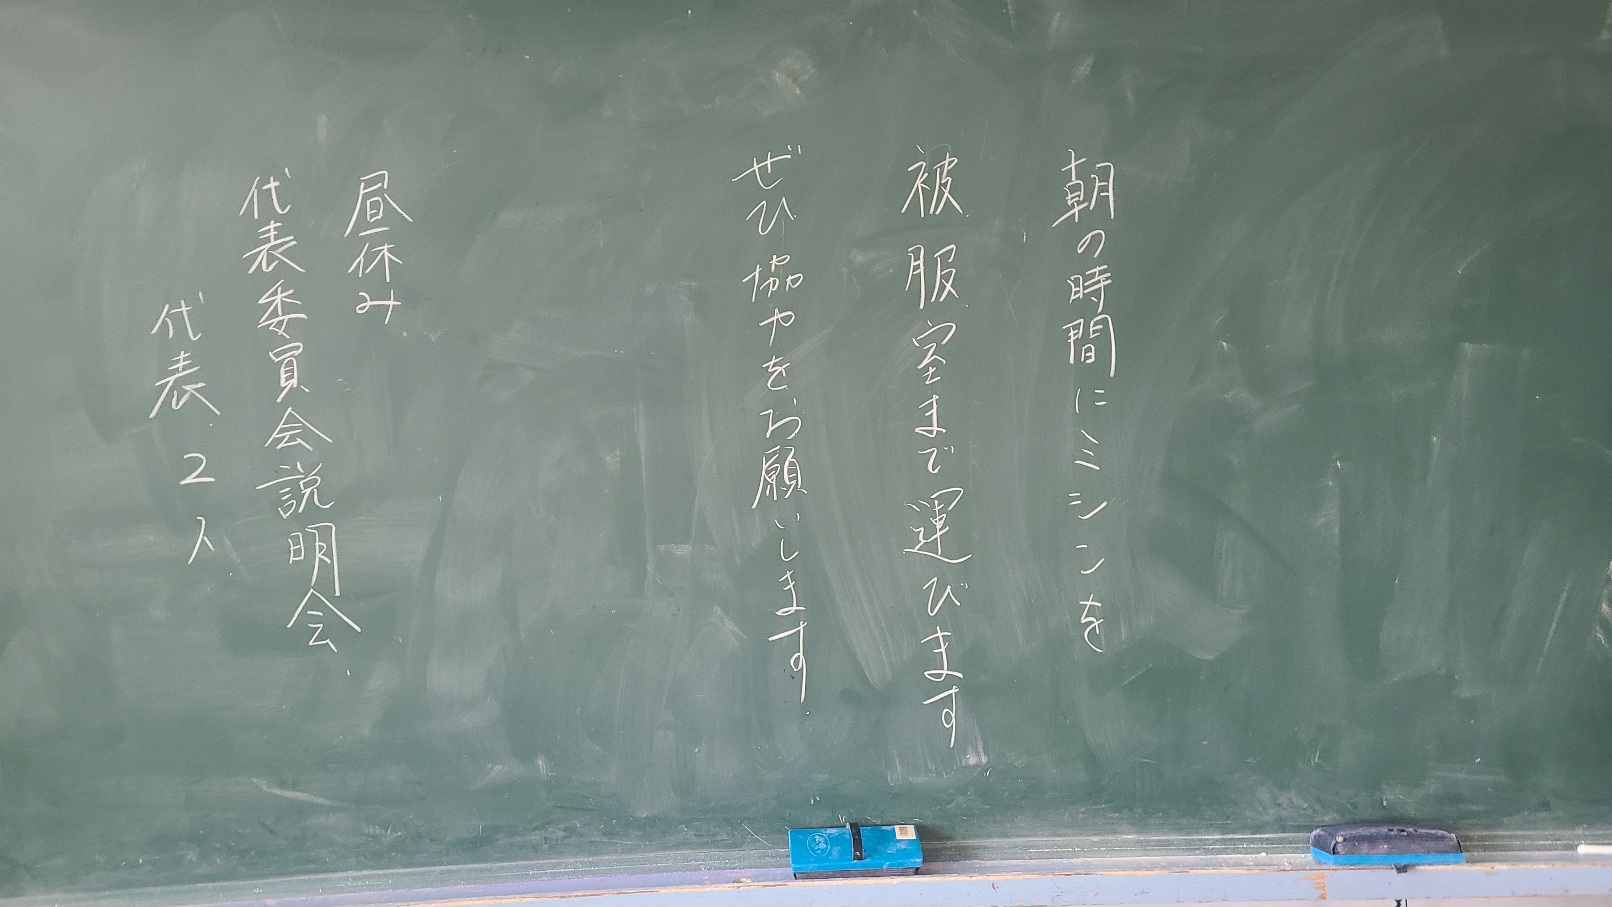 朝の時間にミシンを
被服室まで運びます
ぜひ協力をお願いします
昼休み
代表委員会説明会
代表2人